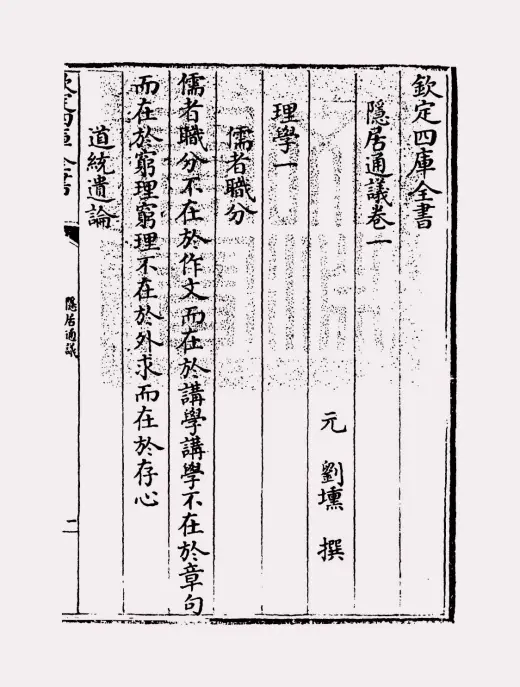 欽定四庫全書
隱居通議卷一
元 劉壎 撰
理學一
儒者職分
儒者職分不在於作文而在於講學講學不在於章句
而在於窮理窮理不在於外求而在於存心
道統遺論
欽定四庫全書
隱居通議
二